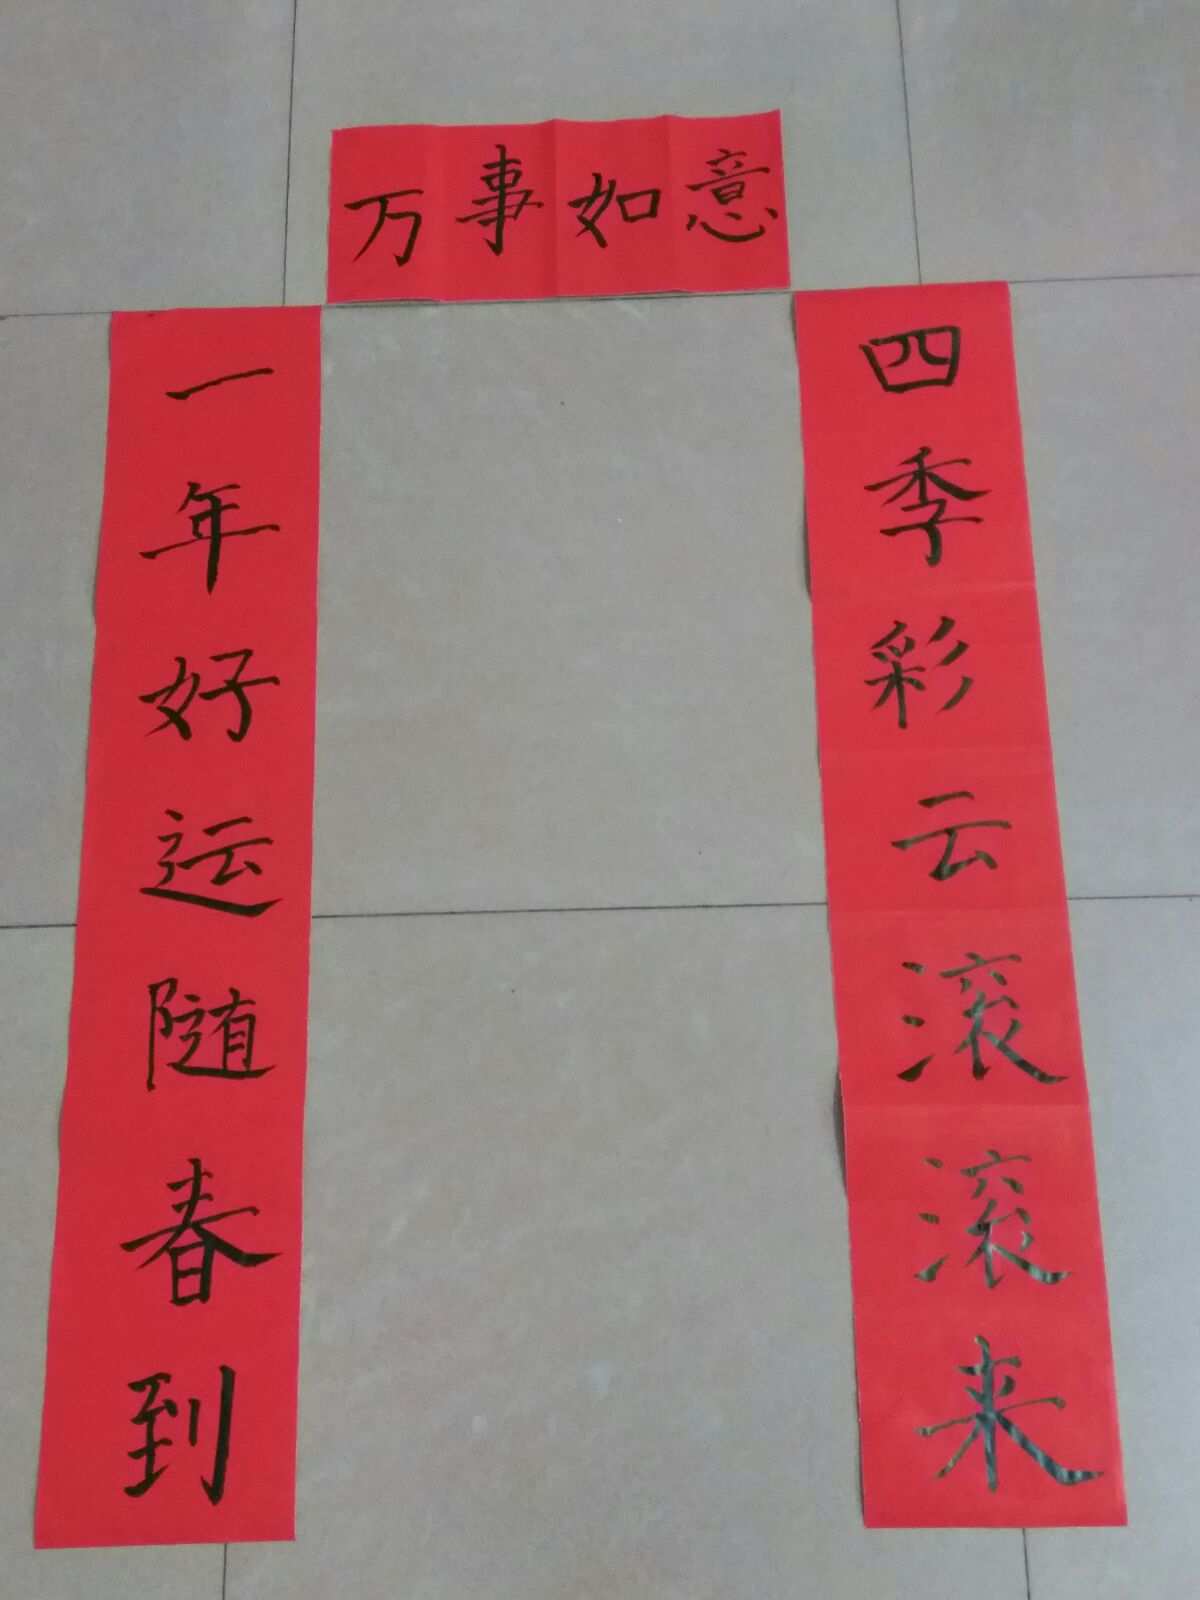 万事如意
一年好运随春到
四季彩云滚滚来